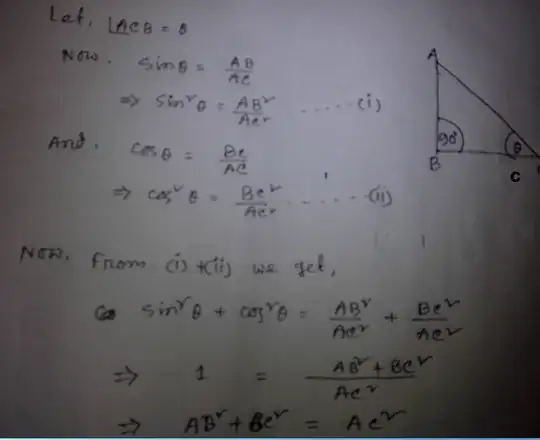 Let, ∠ACB = θ
Now. sinθ = AB/AC
⇒ sin²θ = AB²/AC² ..... (i)
And. cosθ = BC/AC
⇒ cos²θ = BC²/AC² ....... (ii)
Now. From (i)+(ii) we get,
sin²θ + cos²θ = AB²/AC² + BC²/AC²
⇒ 1 = AB² + BC²/AC²
⇒ AB² + BC² = AC²
A
90°
θ
B
C